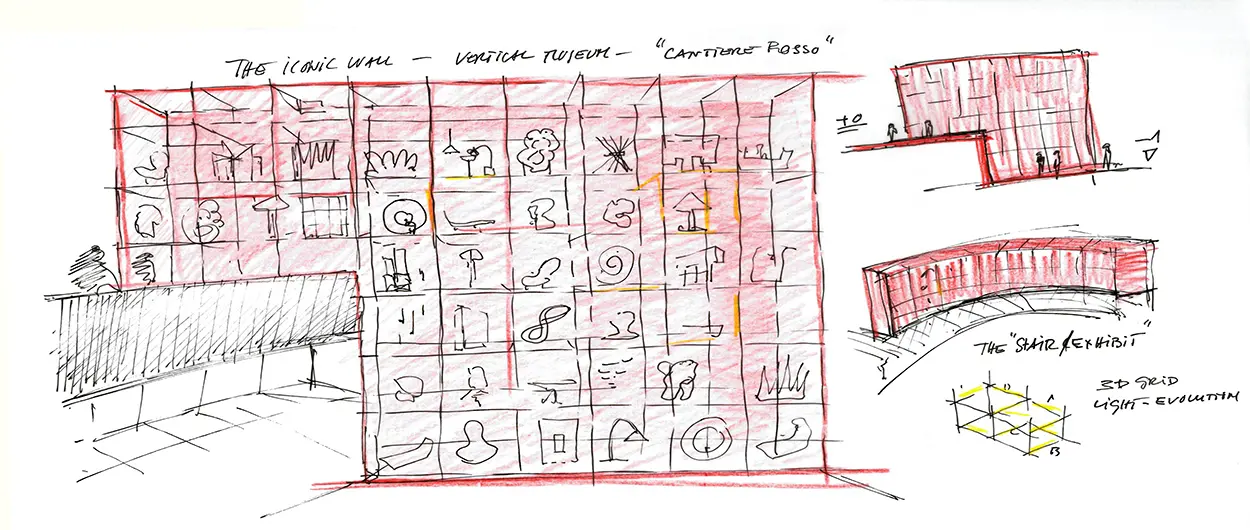 THE ICONIC WALL — VERTICAL MUSEUM — "CANTIERE ROSSO"
±0
-1
THE "STAIR/EXHIBIT"
3D GRID
LIGHT-EVOLUTION
A
B